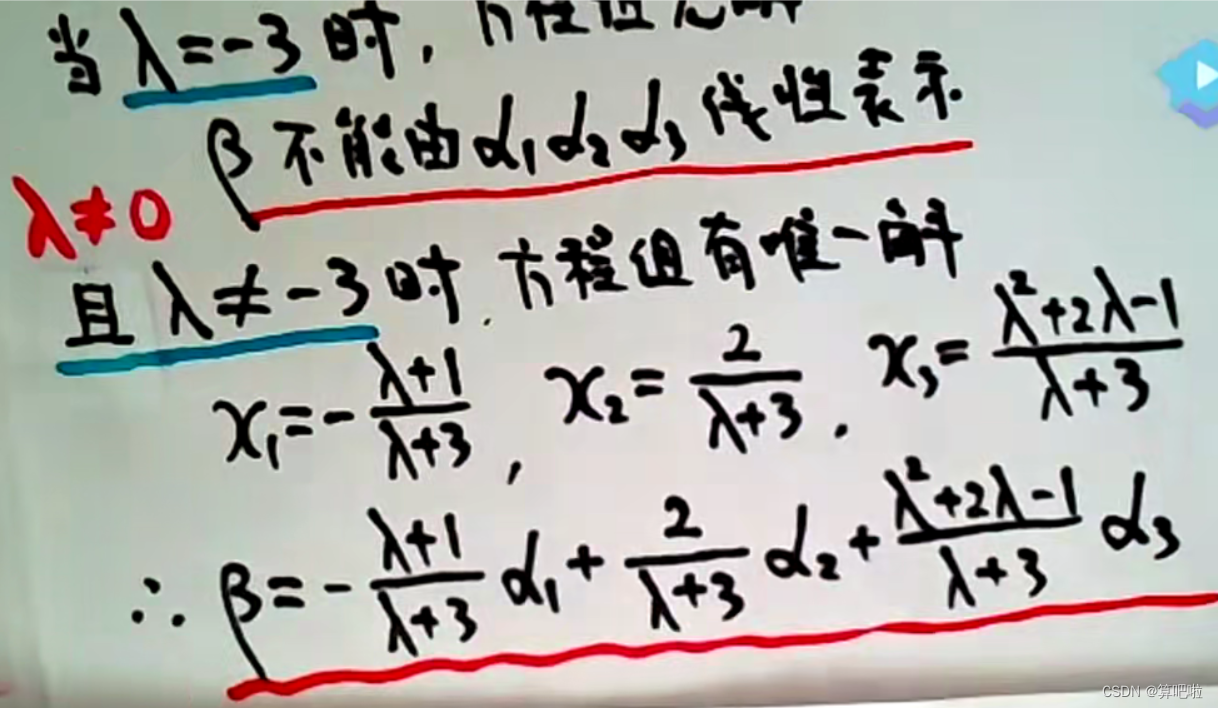 当 λ=-3 时, 方程组无解
β 不能由 α₁ α₂ α₃ 线性表示
λ≠0
且 λ≠-3 时. 方程组有唯一解
x₁=-\frac{λ+1}{λ+3}, x₂=\frac{2}{λ+3}. x₃=\frac{λ²+2λ-1}{λ+3}
∴ β=-\frac{λ+1}{λ+3}α₁+\frac{2}{λ+3}α₂+\frac{λ²+2λ-1}{λ+3}α₃
CSDN @算吧啦